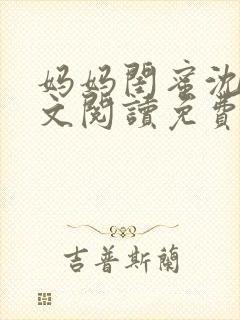 妈妈閨蜜沈
文閱讀免費
吉普斯蘭